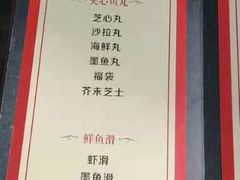 夹心鱼丸
芝心丸
沙拉丸
海鲜丸
墨鱼丸
福袋
芥末芝士
鲜鱼滑
虾滑
墨鱼滑